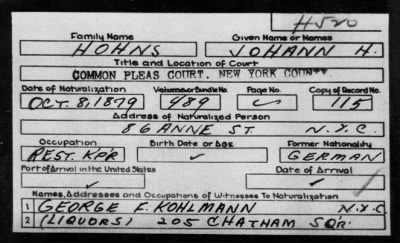 H520
Family Name Given Name or Names
HOHNS JOHANN H.
Title and Location of Court
COMMON PLEAS COURT. NEW YORK COUNTY.
Date of Naturalization Volume or Bundle No. Page No. Copy of Record No.
OCT. 8, 1879 489 ✓ 115
Address of Naturalized Person
86 ANNE ST. N.Y.C.
Occupation Birth Date or Age Former Nationality
REST. KP'R ✓ GERMAN
Port of Arrival in the United States Date of Arrival
✓ ✓
Names, Addresses and Occupations of Witnesses To Naturalization
1 GEORGE F. KOHLMANN N.Y.C
2 (LIQUORS) 205 CHATHAM SQR.